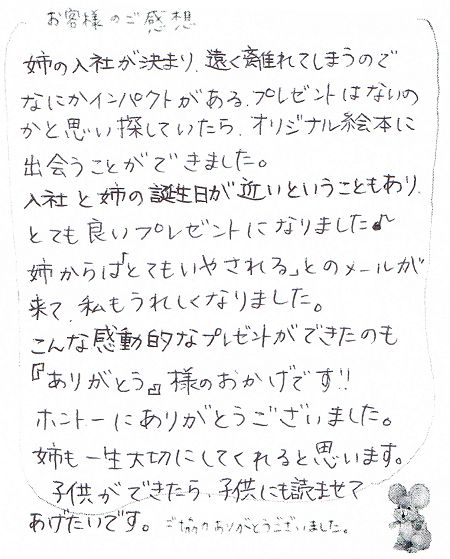 お客様のご感想
姉の入社が決まり、遠く離れてしまうので
なにかインパクトがある、プレゼントはないの
かと思い探していたら、オリジナル絵本に
出会うことができました。
入社と姉の誕生日が近いということもあり、
とても良いプレゼントになりました♪〜
姉からは「とてもいやされる」とのメールが
来て、私もうれしくなりました。
こんな感動的なプレゼントができたのも
『ありがとう』様のおかげです!!
ホントーにありがとうございました。
姉も一生大切にしてくれると思います。
子供ができたら、子供にも読ませて
あげたいです。ご協力ありがとうございました。